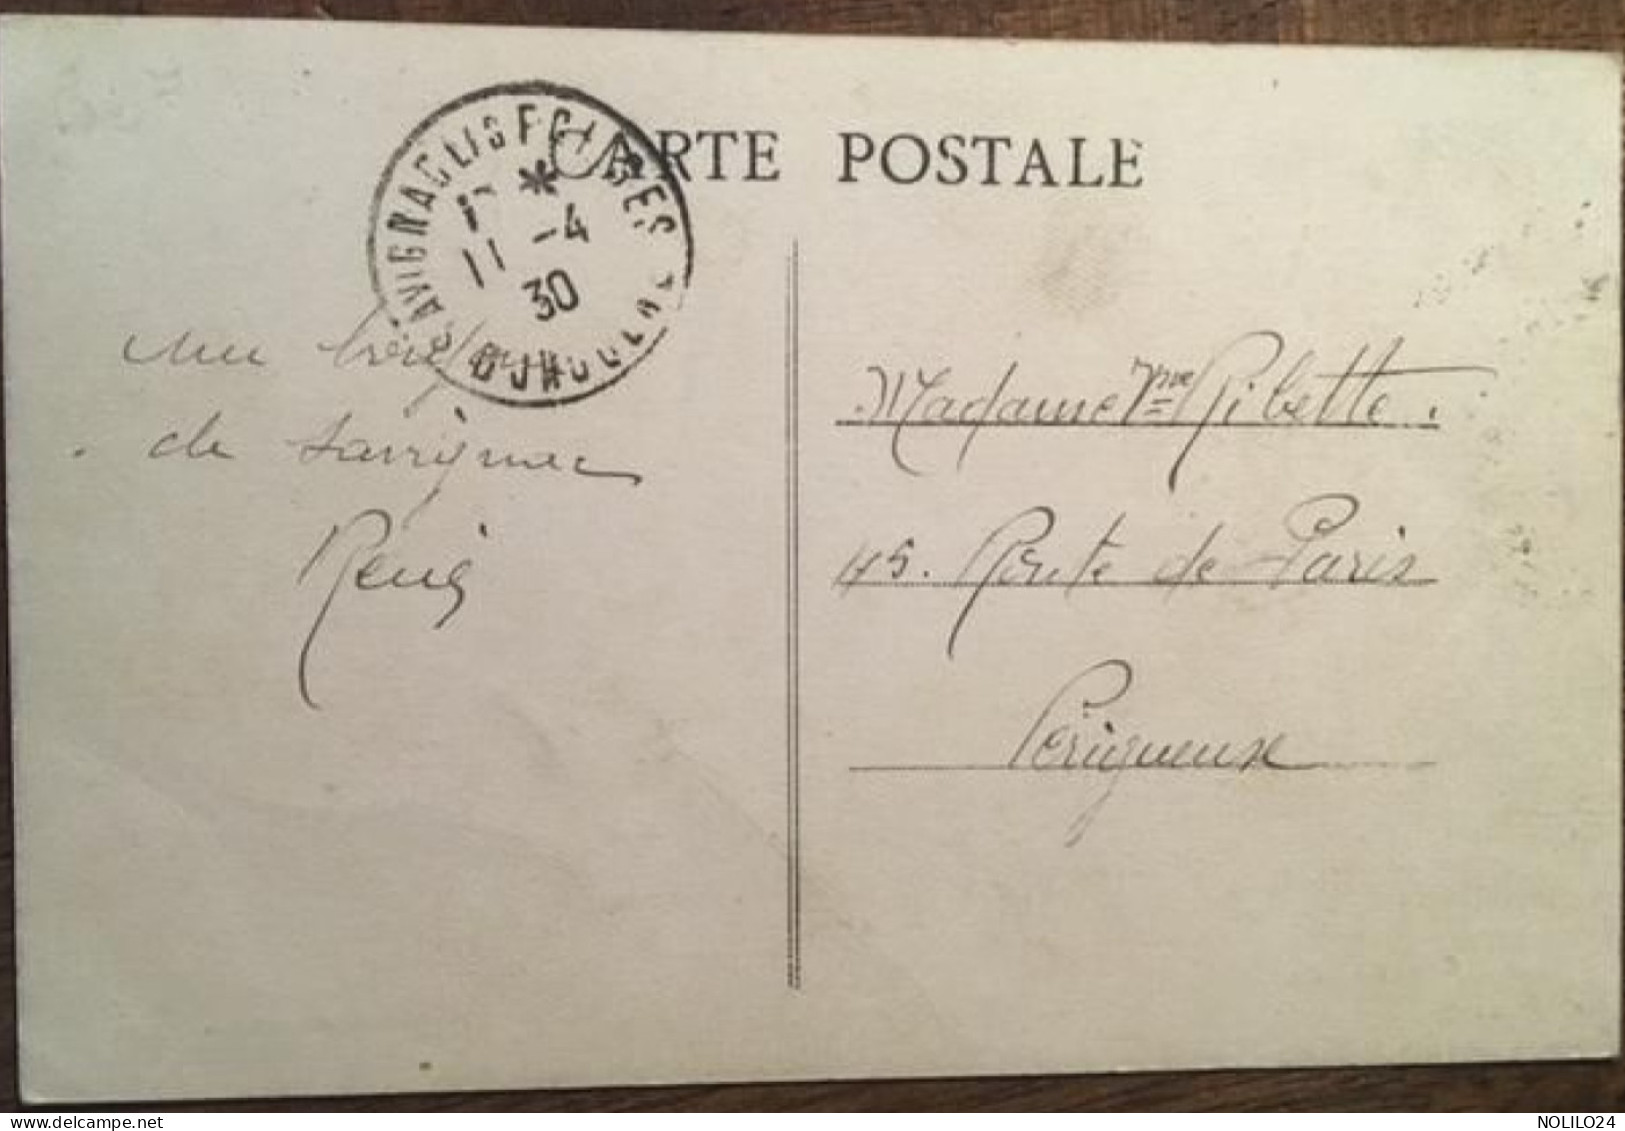 CARTE POSTALE
SAVIGNAC LES EGLISES
17 *
11 -4
30
DORDOGNE
de Savignac
René
Madame Vve Ribette.
45. Route de Paris
Périgueux
NOLILO24